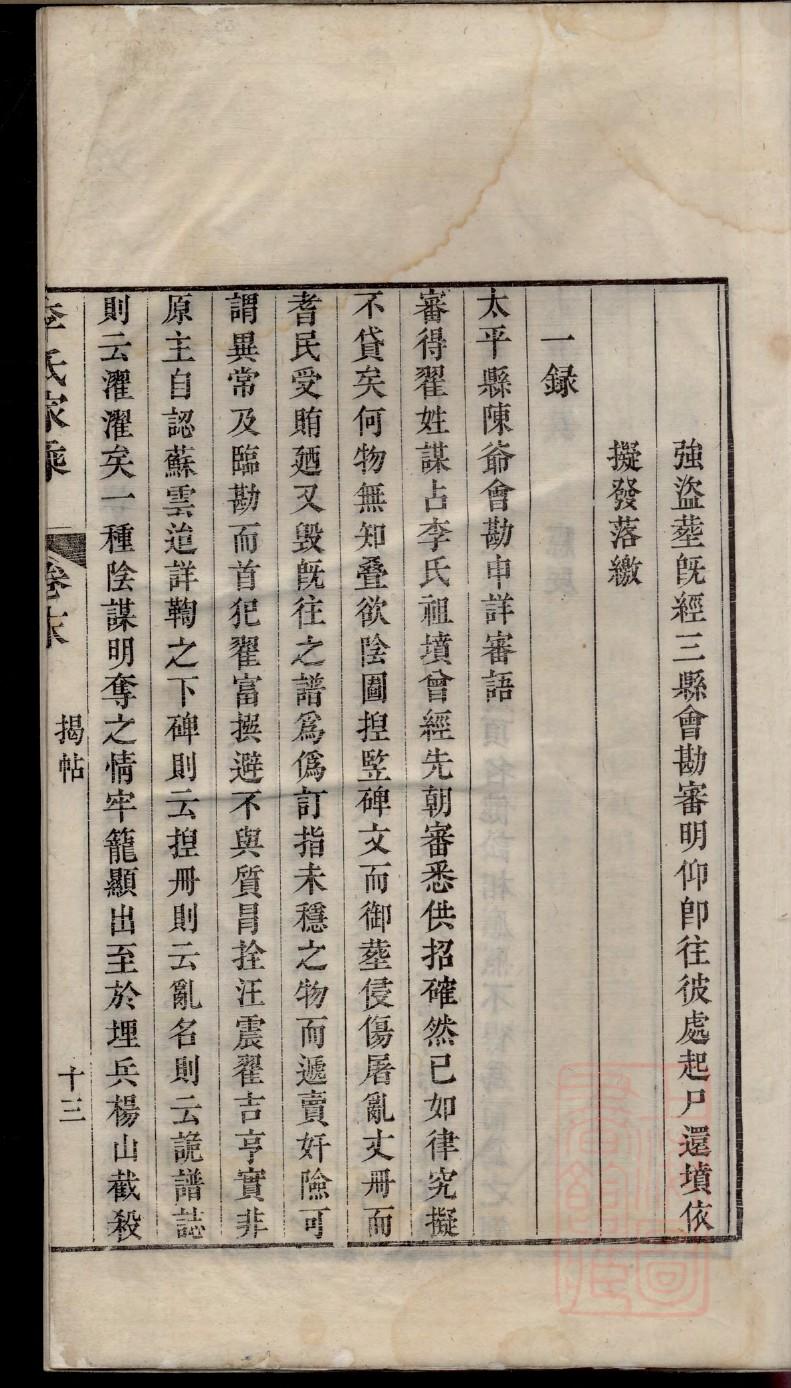 強盜塟旣經三縣會勘審明仰卽往彼處起尸還墳依
擬發落繳
一録
太平縣陳爺會勘申詳審語
審得翟姓謀占李氏祖墳曾經先朝審悉供招確然已如律究擬
不貸矣何物無知叠欲陰圖揑竪碑文而御塟侵傷屠亂丈册而
耆民受賄廼又毀旣往之譜爲僞訂指未穩之物而遞賣奸險可
謂異常及臨勘而首犯翟富撰避不與質冐拴汪震翟吉亨實非
原主自認蘇雲造詳鞫之下碑則云揑册則云亂名則云詭譜誌
則云濯濯矣一種陰謀明奪之情牢籠顯出至於埋兵楊山截殺
李氏家乘 卷末 揭帖 十三